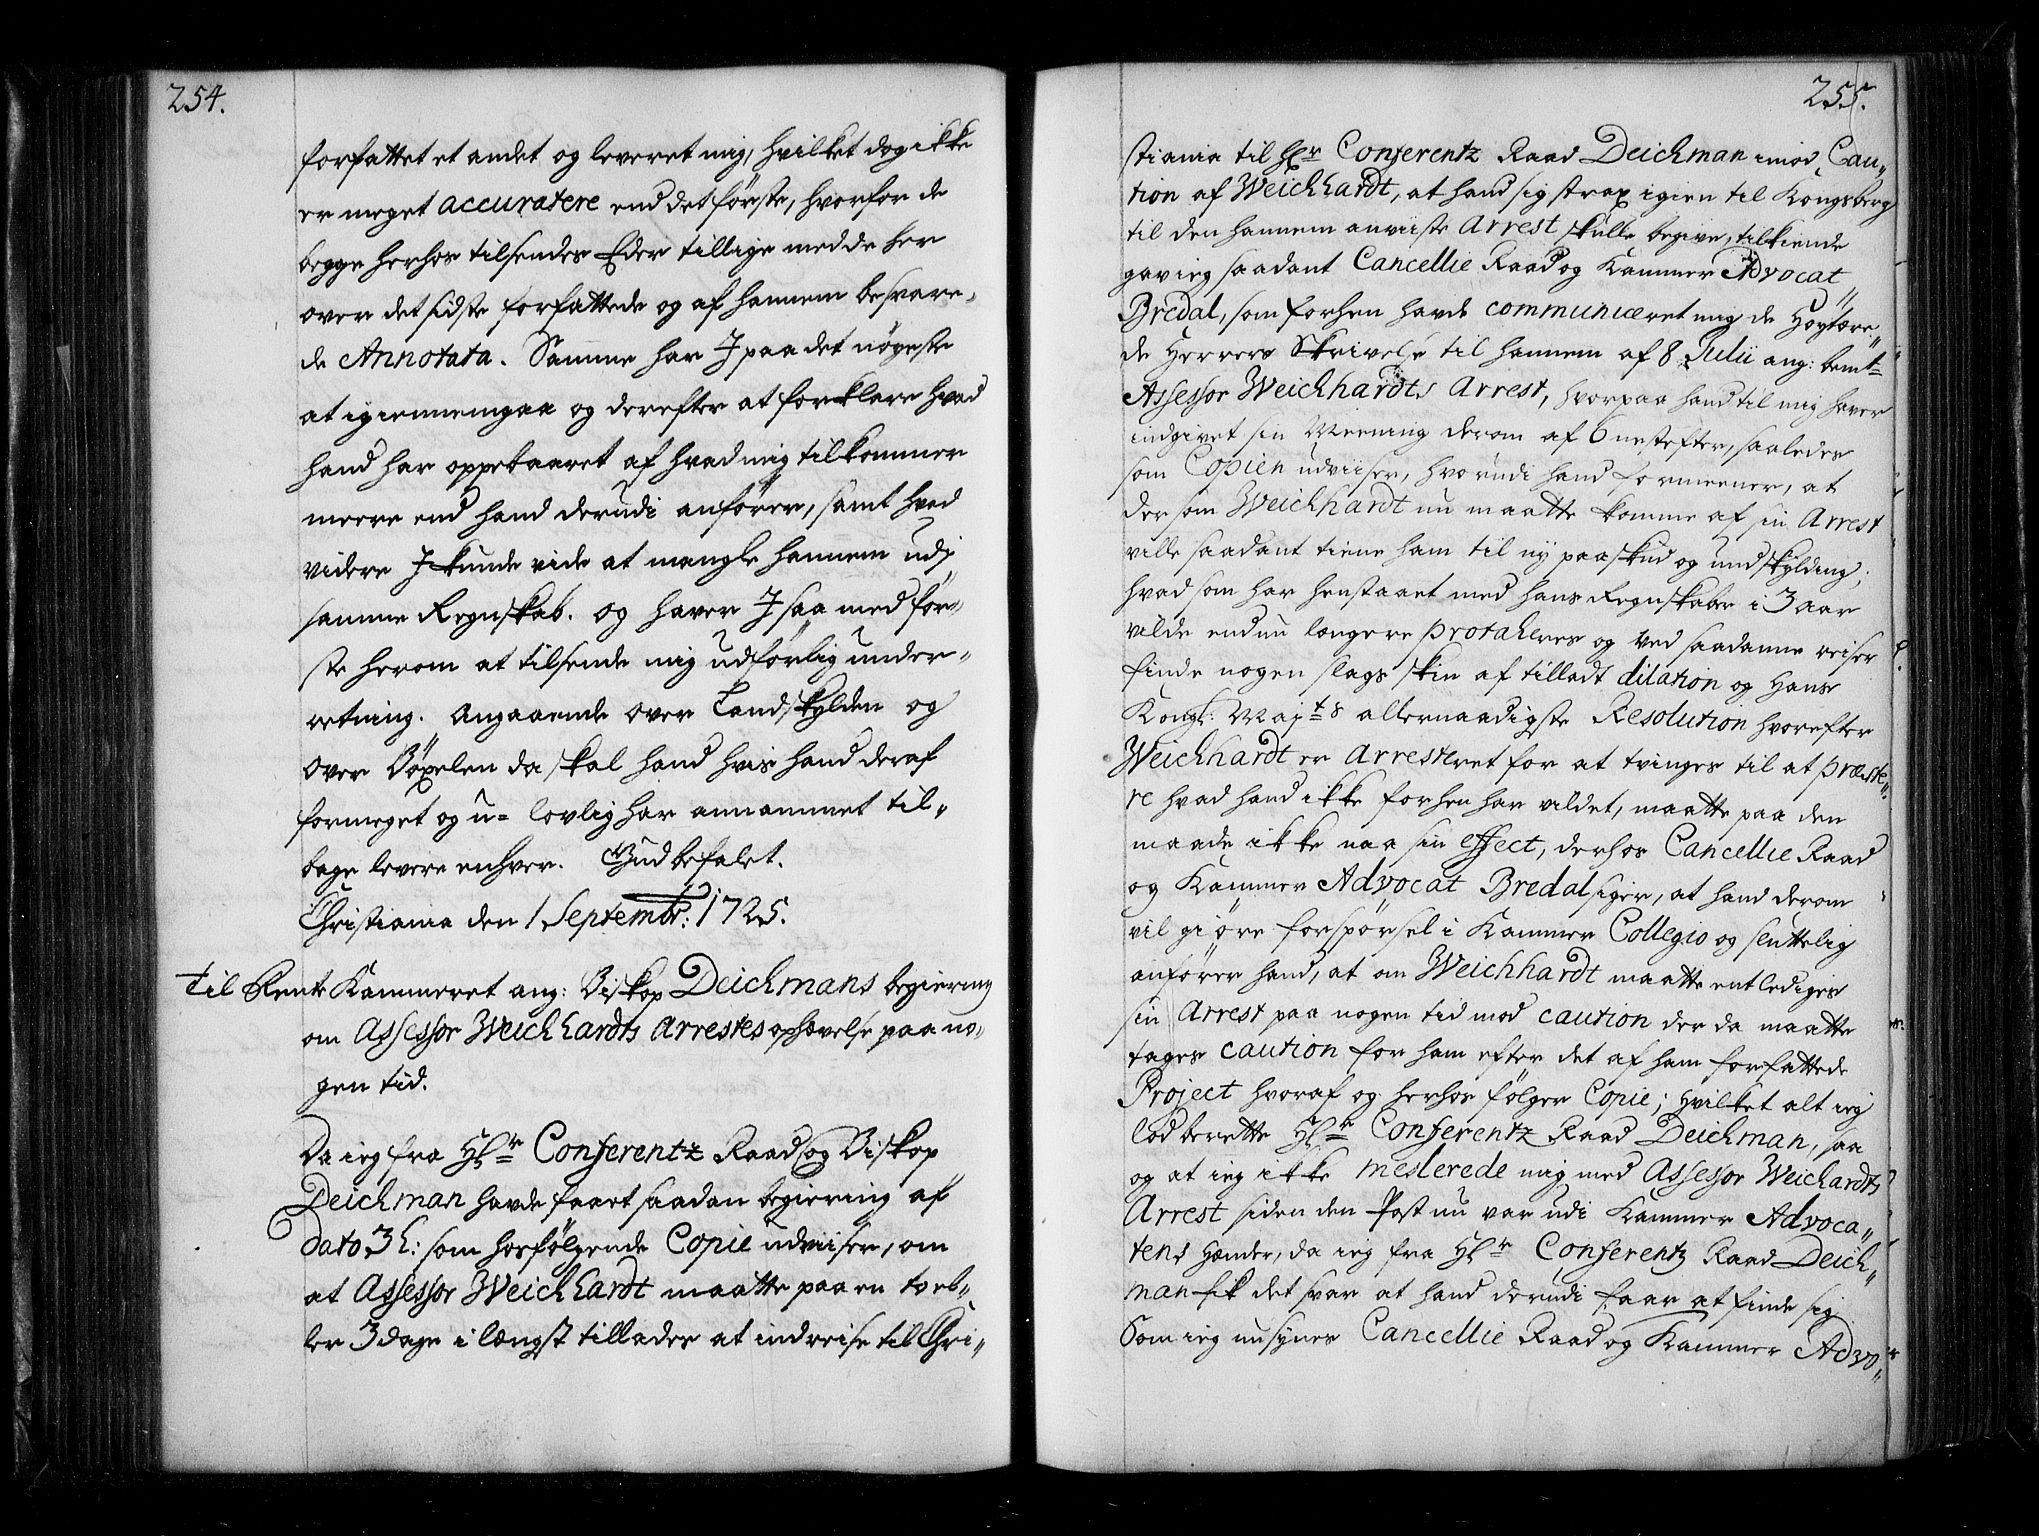 254.
forfattet et andet og leveret mig, hvilket dog ikke
er meget accuratere end det første, hvorfor de
begge herhos tilsendes Eder tillige med de her
over det sidste forfattede og af hannem besvare,,
de Annotata. Samme har I paa det nøyeste
at igiennemgaa og derefter at forklare hvad
hand har oppebaaret af hvad mig tilkommer
meere end hand derudi anfører, samt hvad
videre I kunde vide at mangle hannem udj
samme Regnskab. og haver I saa med før,,
ste herom at tilsende mig udførlig under,,
retning. Angaaende over Landskylden og
over Bøxelen da skal hand hvis hand deraf
formeget og u- lovlig har annammet til,,
bage levere enhver. Gud befalet.
Christiania den 1 Septembr: 1725.
Til Rente Kammeret ang: Biskop Deichmans begiering
om Assessor Weichhardts Arrestes ophævelse paa no,,
gen tid.
Da ieg fra Hr Conferentz Raad og Biskop
Deichman havde faaet saadan begiering af
dato 3 h: som hosfølgende Copie udviiser, om
at Assessor Weichhardt maatte paa en to el,,
ler 3 dage i længst tillades at indreise til Chri,,
255.
stiania til Hr Conferentz Raad Deichman imod Cau,,
tion af Weichhardt, at hand sig strax igien til Kongsberg
til den hannem anviiste Arrest skulle begive, tilkiende
gav ieg saadant Cancellie Raad og Kammer Advocat
Bredal, som forhen havde communiceret mig de Høytære,,
de Herrers Skrivelse til hannem af 8 Julii ang: bemt
Assessor Weichhardts Arrest, hvorpaa hand til mig haver
indgivet sin Meening derom af 6 nestefter, saaledes
som Copien udviiser, hvorudi hand formeener, at
dersom Weichhardt nu maatte komme af sin Arrest
ville saadant tiene ham til ny paaskud og undskylding;
hvad som har henstaaet med hans Regnskaber i 3 aar
vilde endnu længere protaheres og ved saadanne reiser
finde nogen slags skin af tilladt dilation og Hans
Kongl: Majts allernaadigste Resolution hvorefter
Weichhardt er Arresteret for at tvinges til at præste,,
re hvad hand ikke forhen har vildet, maatte paa den
maade ikke naa sin effect, derhos Cancellie Raad
og Kammer Advocat Bredal siger, at hand derom
vil giøre forspørsel i Kammer Collegio og sluttelig
anfører hand, at om Weichhardt maatte entlediges
sin Arrest paa nogen tid mod caution der da maatte
tages caution for ham efter det af ham forfattede
Project hvoraf og herhos følger Copie; hvilket alt ieg
lod berette Hr Conferentz Raad Deichman, saa
og at ieg ikke meslerede mig med Assessor Weichardts
Arrest siden den Post nu var udi Kammer Advoca,,
tens Hænder, da ieg fra Hr Conferentz Raad Deich,,
man fik det svar at hand derudi faar at finde sig
Som ieg nu synes Cancellie Raad og Kammer Advo,,